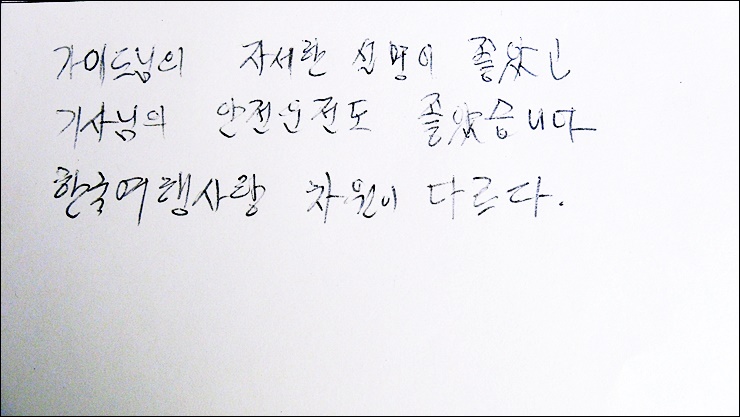 가이드님의 자세한 설명이 좋았고
기사님의 안전운전도 좋았습니다
한국여행사랑 차원이 다르다.